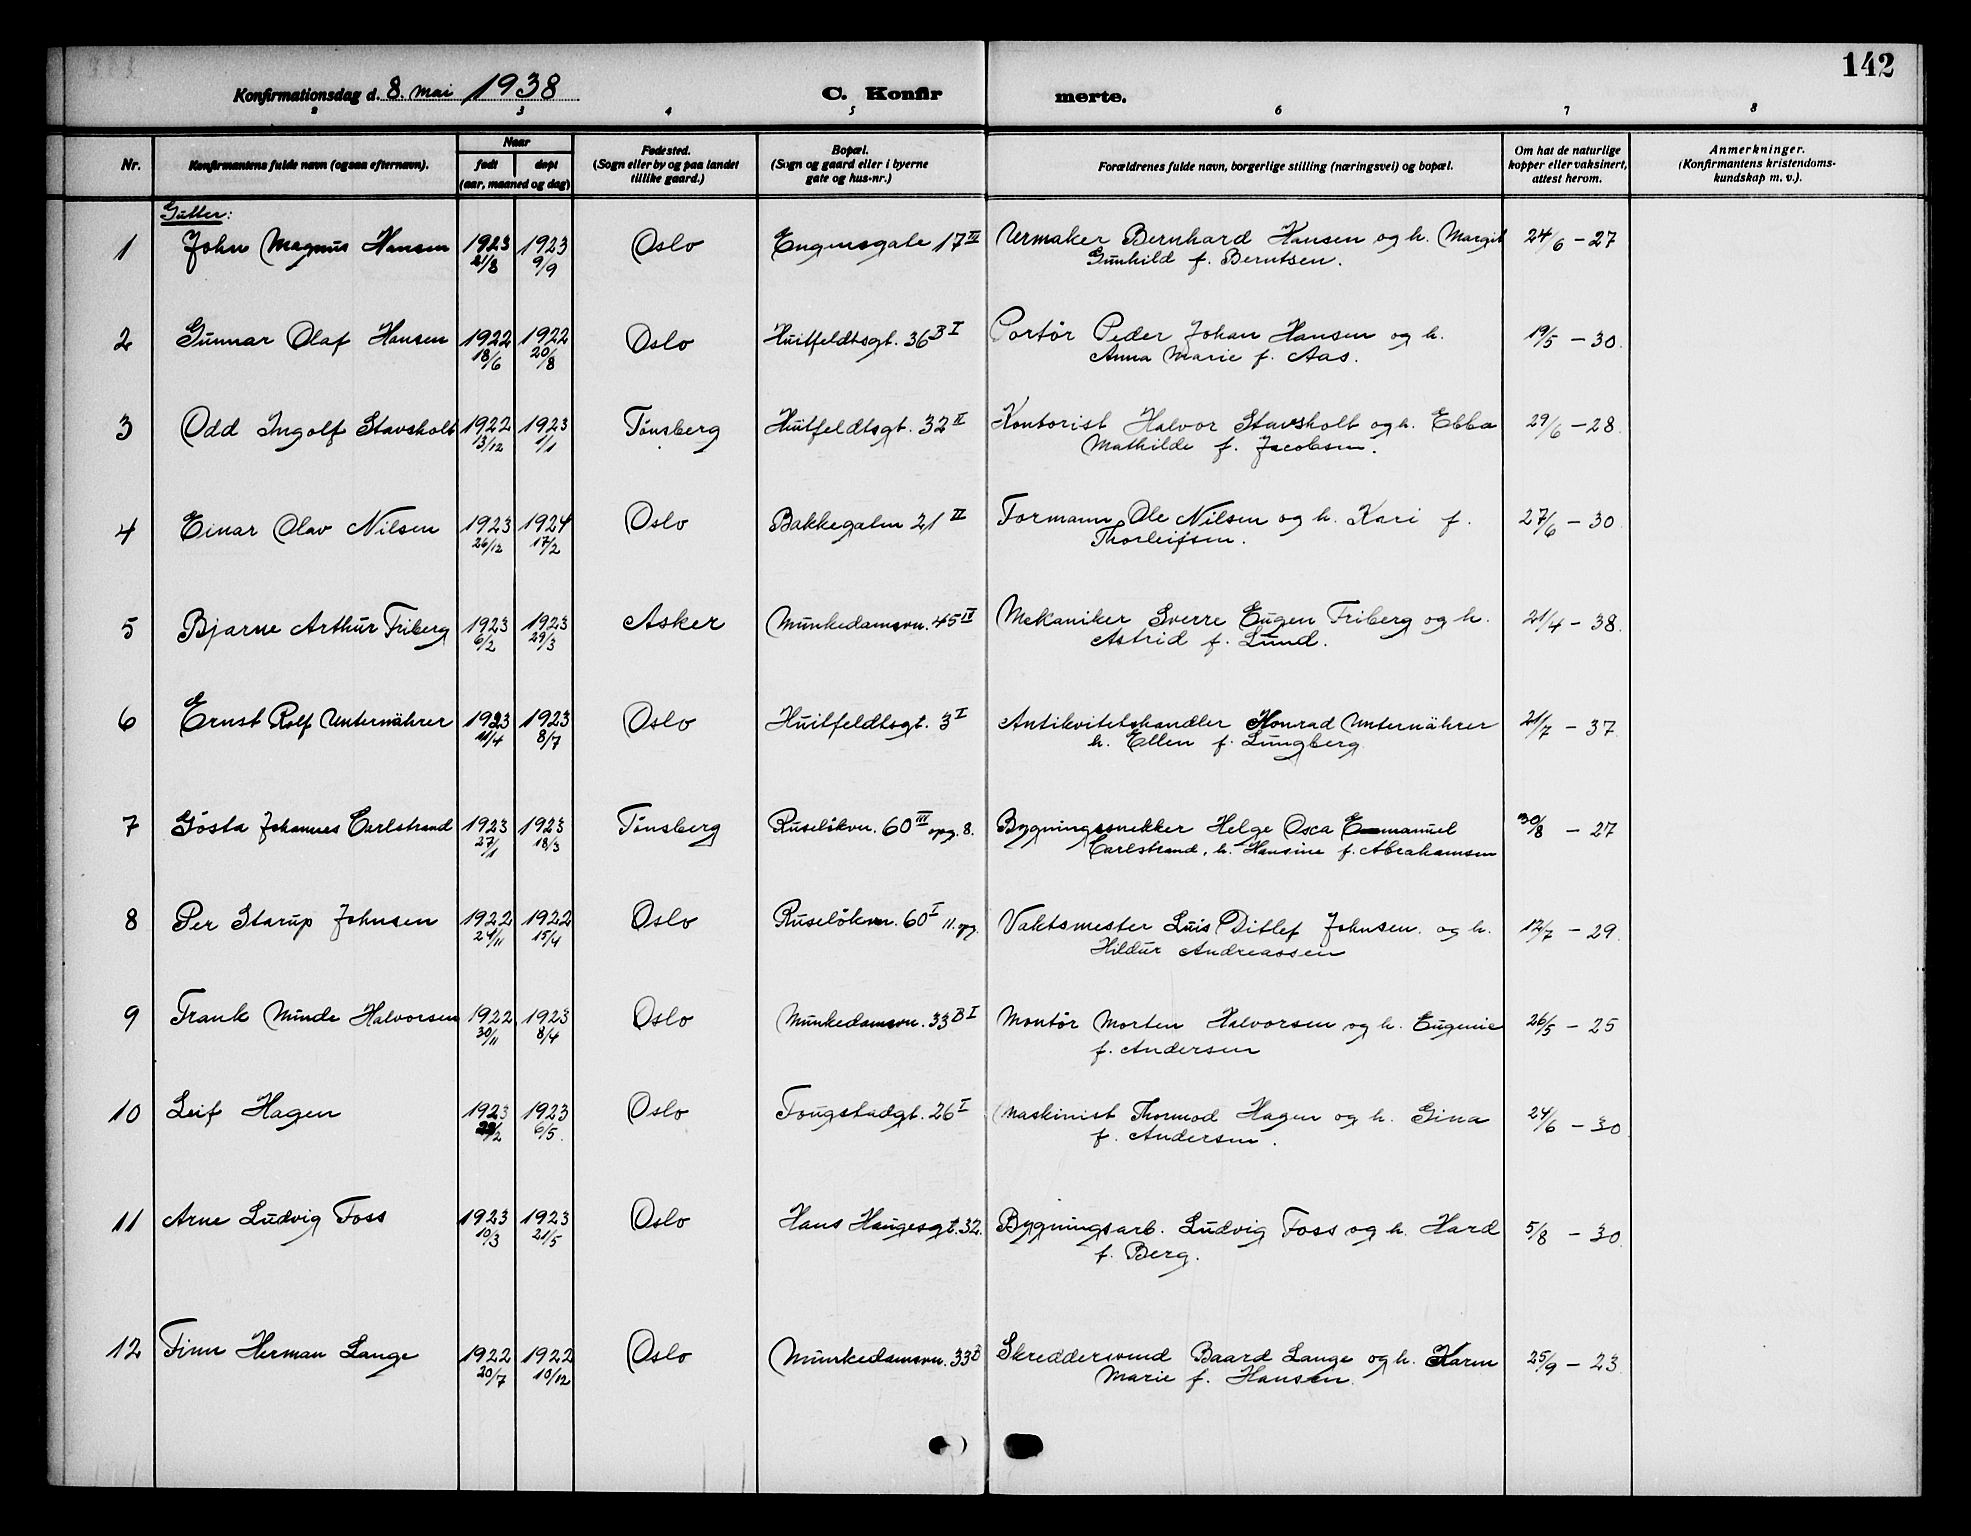 142
Konfirmationsdag d. 8. mai 1938 C. Konfir merte.
2 3 4 5 6 7 8
Nr. Konfirmantens fulde navn (ogsaa efternavn). Naar født døpt (aar, maaned og dag) Fødested. (Sogn eller by og paa landet tillike gaard.) Bopæl. (Sogn og gaard eller i byerne gate og hus-nr.) Forældrenes fulde navn, borgerlige stilling (næringsvei) og bopæl. Om hat de naturlige kopper eller vaksinert, attest herom. Anmerkninger. (Konfirmantens kristendoms-kundskap m. v.).
Gutter:
1 John Magnus Hansen 1923 1923 Oslo Engensgate 17 III Urmaker Bernhard Hansen og h. Margit 24/6 - 27
21/8 9/9 Gunhild f. Berntsen.
2 Gunnar Olaf Hansen 1922 1922 Oslo Huitfeldtsgt. 36 B I Portør Peder Johan Hansen og h. 19/5 - 30.
18/6 20/8 Anna Marie f. Aas.
3 Odd Ingolf Stavsholt 1922 1923 Tønsberg Huitfeldtsgt. 32 II Kontorist Halvor Stavsholt og h. Ebba 29/6 - 28.
13/12 1/1 Mathilde f. Jacobsen.
4 Einar Olav Nilsen 1923 1924 Oslo Bakkegaten 21 II Formann Ole Nilsen og h. Kari f. 27/6 - 30.
26/12 17/2 Thorleifsen.
5 Bjarne Arthur Friberg 1923 1923 Asker Munkedamsvn. 45 IV Mekaniker Sverre Eugen Friberg og h. 21/4 - 38.
6/2 29/3 Astrid f. Lund.
6 Ernst Rolf Unternährer 1923 1923 Oslo Huitfeldtsgt. 3 I Antikvitetshandler Konrad Unternährer 21/7 - 37.
11/4 8/7 h. Ellen f. Lungberg
7 Gösta Johannes Carlstrand 1923 1923 Tønsberg Ruseløkvn. 60 III opg. 8. Bygningssnekker Helge Osca Emanuel 30/8 - 27
27/1 18/3 Carlstrand, h. Hansine f. Abrahamsen
8 Per Starup Johnsen 1922 1922 Oslo Ruseløkvn. 60 I 11. opg. Vaktsmester Luis Ditlef Johnsen. og h. 12/7 - 29.
15/4 Hildur Andreassen
9 Frank Minde Halvorsen 1922 1923 Oslo Munkedamsvn. 33 B I Montør Morten Halvorsen og h. Eugenie 26/5 - 25
30/11 8/4 f. Andersen
10 Leif Hagen 1923 1923 Oslo Fougstadgt. 26 I Maskinist Thormod Hagen og h. Gina 24/6 - 30.
6/5. f. Andersen.
11 Arne Ludvig Foss 1923 1923 Oslo Hans Haugesgt. 32. Bygningsarb. Ludvig Foss og h. Hard 5/8 - 30.
10/3 21/5 f. Berg.
12 Finn Herman Lange 1922 1922 Oslo Munkedamsvn. 33 B Skreddersvend Baard Lange og h. Karen 25/9 - 23.
20/7 10/12 Marie f. Hansen.